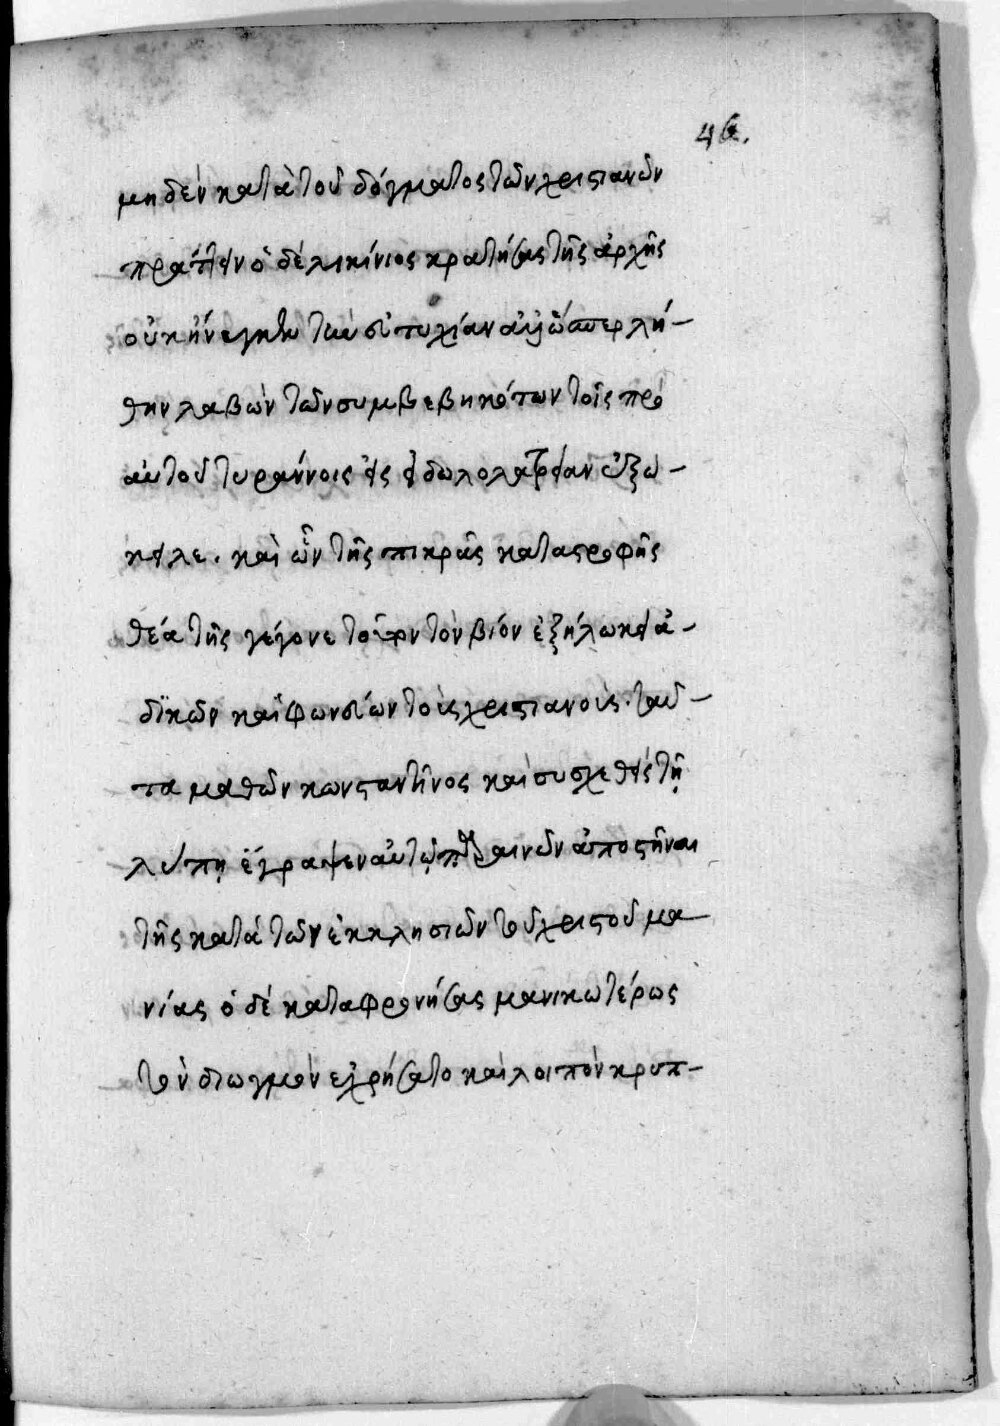 46.
μηδὲν κατὰ τοῦ δόγματος τῶν χριστιανῶν
πράττειν ὁ δὲ λικίνιος κρατήσας τῆς ἀρχῆς
οὐκ ἤνεγκεν τὴν εὐτυχίαν ἀλλ' ὥσπερ λή-
θην λαβὼν τῶν συμβεβηκότων τοῖς πρὸ
αὐτοῦ τυράννοις εἰς εἰδωλολατρείαν ἐξώ-
κειλε. καὶ ὧν τῆς πικρᾶς καταστροφῆς
θεάτης γέγονε τούτων τὸν βίον ἐζηλώκει ἀ-
δϊκῶν καὶ φονεύων τοὺς χριστιανούς. ταῦ-
τα μαθὼν κωνσταντῖνος καὶ συσχεθεὶς τῇ
λύπῃ ἔγραψεν αὐτῷ παραινῶν ἀποστῆναι
τῆς κατὰ τῶν ἐκκλησιῶν τοῦ χριστοῦ μα-
νίας ὁ δὲ καταφρονήσας μανικωτέρως
τὸν διωγμὸν ἐχρήσατο καὶ λοιπὸν κρυπ-